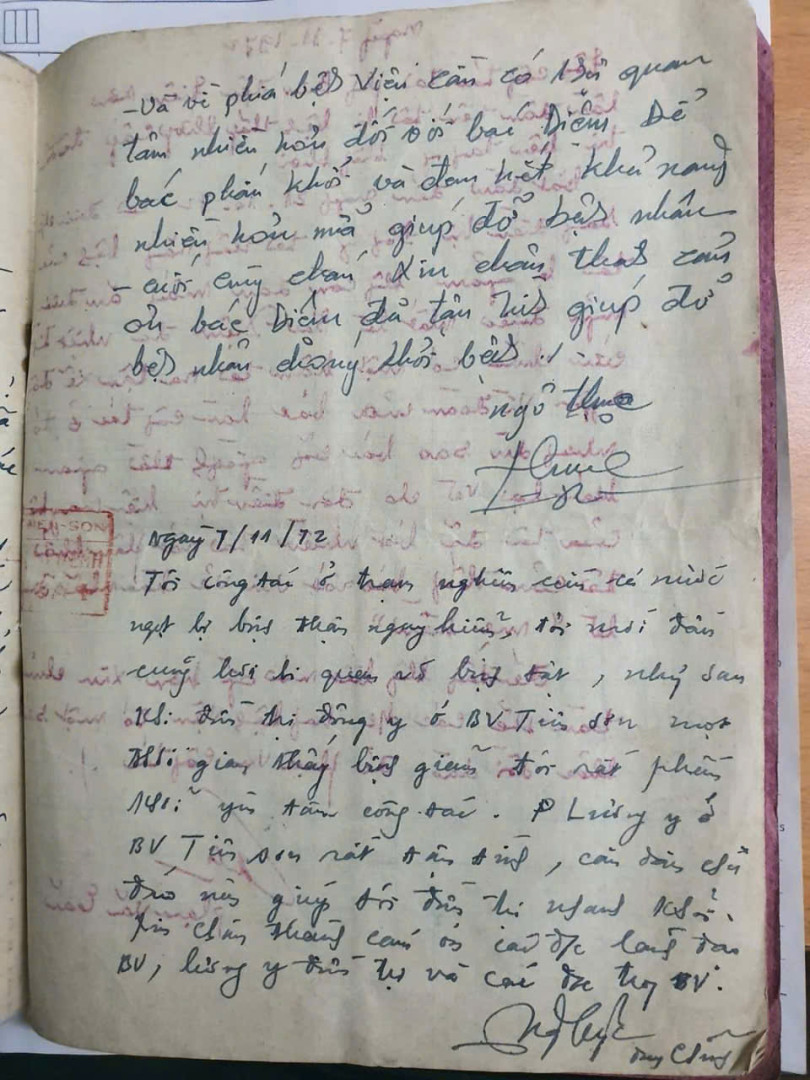 - Và về phiá bệh Viện cần có sự quan
tâm nhiền hơn đối với bác Diễm Để
bác phấn khởi và đem hết khả năng
nhiền hơn mà giúp đỡ bệh nhân
- cuối cùng cháu xin chân thàh cảm
ơn bác Diễm đã tận tìh giúp đỡ
bệh nhân chóng khỏi bệh ./.
ngô Thực
Ngày 7/11/72
Tôi công tác ở trạm nghiên cứu cá nước
ngọt bị bệnh thận nguy hiểm tôi mới đầu
cũng hơi bi quan về bệnh tật, nhưng sau
khi điều trị đông y ở BV Tiên Sơn một
thời gian thấy bệnh giảm tôi rất phấn
khởi yên tâm công tác. Lương y ở
BV Tiên Sơn rất tận tình, căn dặn chu
đáo nên giúp tôi điều trị nhanh khỏi.
Xin chân thành cám ơn các đ/c lãnh đạo
BV, lương y điều trị và các đ/c trong BV.